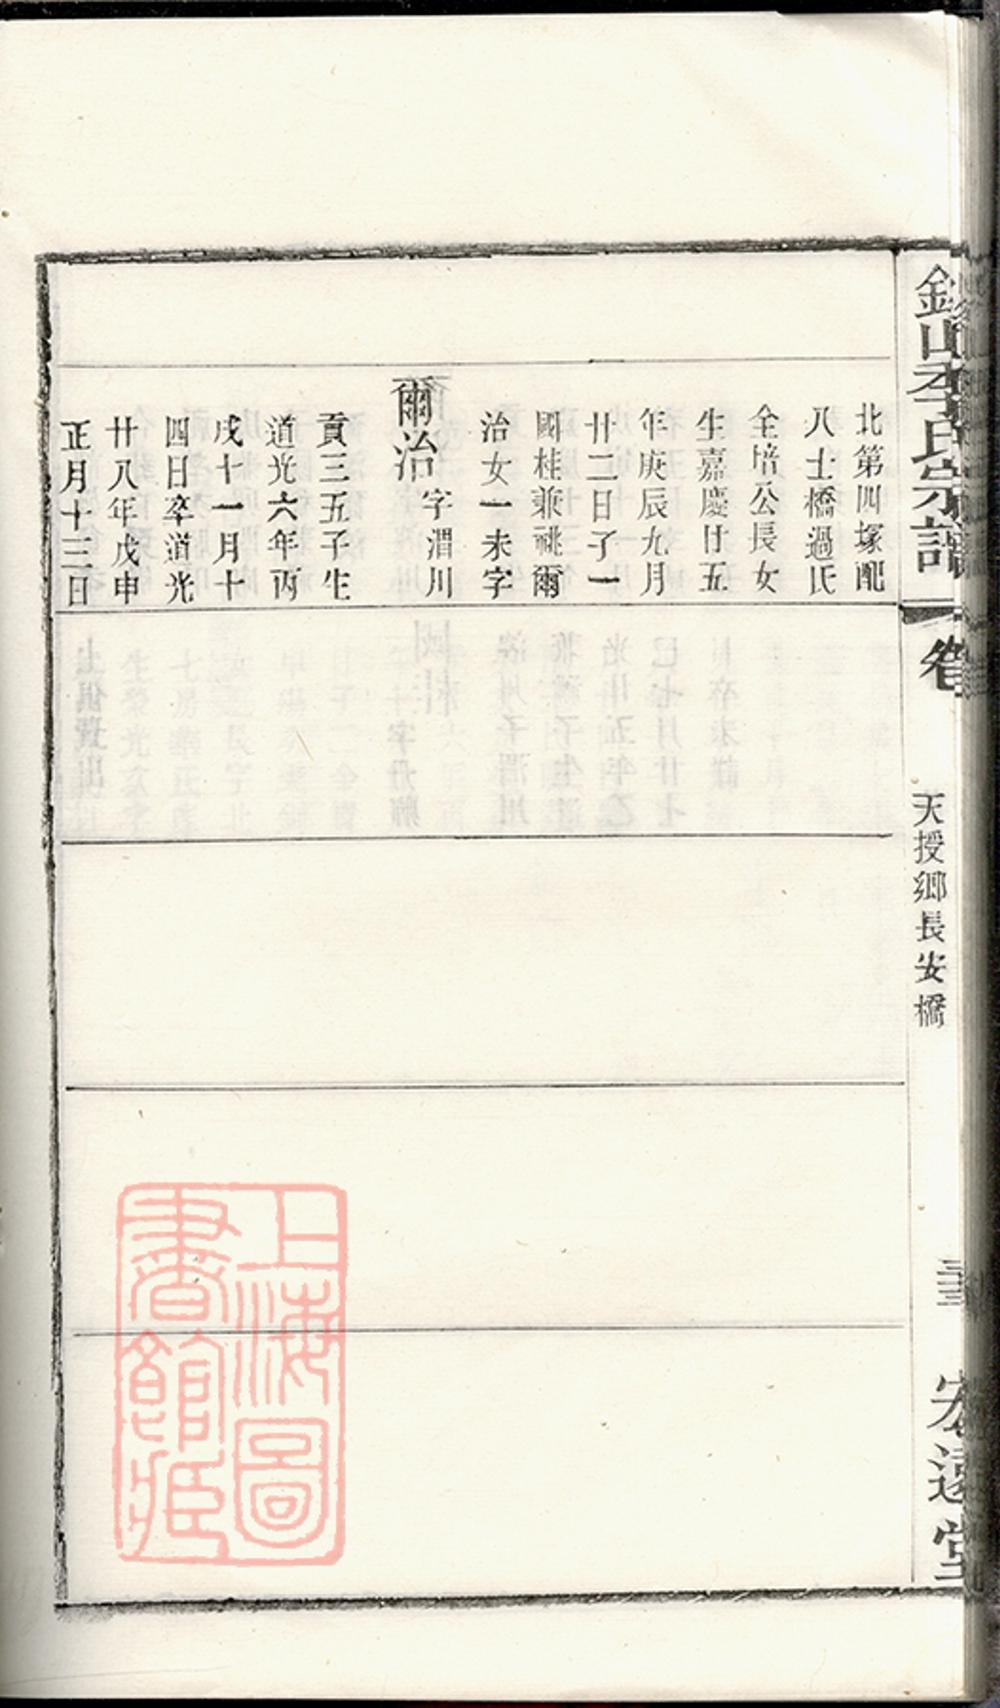 李氏宗譜
卷
天授鄉長安橋
宏遠堂
北第四塚配
八士橋過氏
全培公長女
生嘉慶廿五
年庚辰九月
廿二日子一
國桂兼祧爾
治女一未字
爾治字渭川
貢三五子生
道光六年丙
戌十一月十
四日卒道光
廿八年戊申
正月十三日
上海圖
書館藏